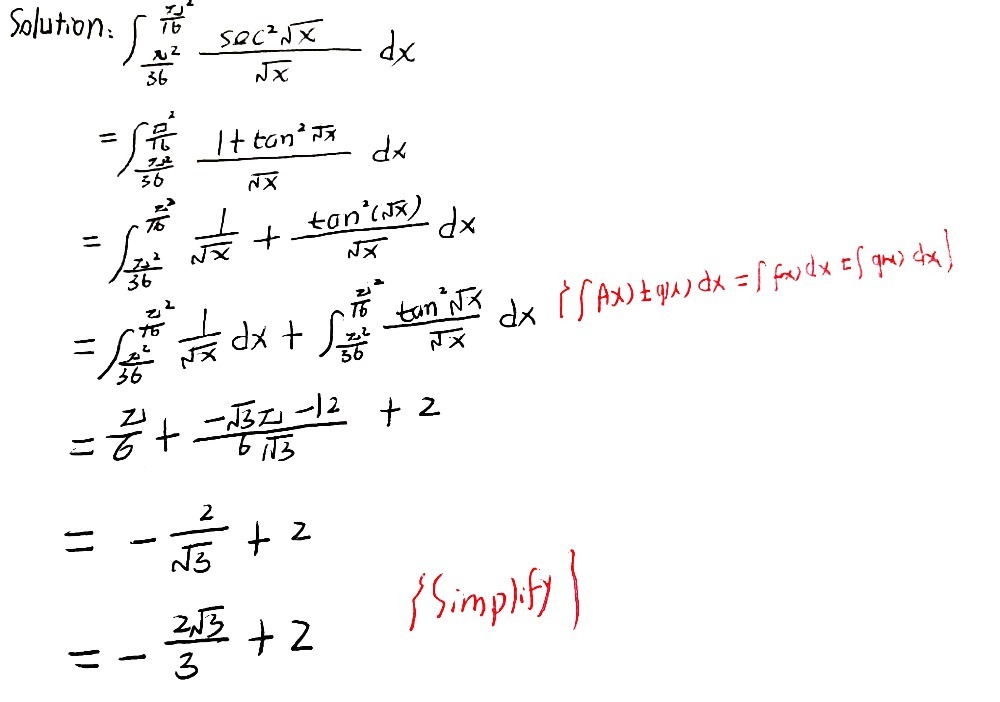 Solution: ∫_{π²/36}^{π²/16} sec²√x / √x dx
= ∫_{π²/36}^{π²/16} (1 + tan²√x) / √x dx
= ∫_{π²/36}^{π²/16} 1/√x + tan²(√x)/√x dx
= ∫_{π²/36}^{π²/16} 1/√x dx + ∫_{π²/36}^{π²/16} tan²√x / √x dx {∫f(x) ± g(x) dx = ∫f(x) dx ± ∫g(x) dx}
= π/6 + (-√3π - 12) / 6√3 + 2
= - 2/√3 + 2
= - 2√3/3 + 2 {Simplify}